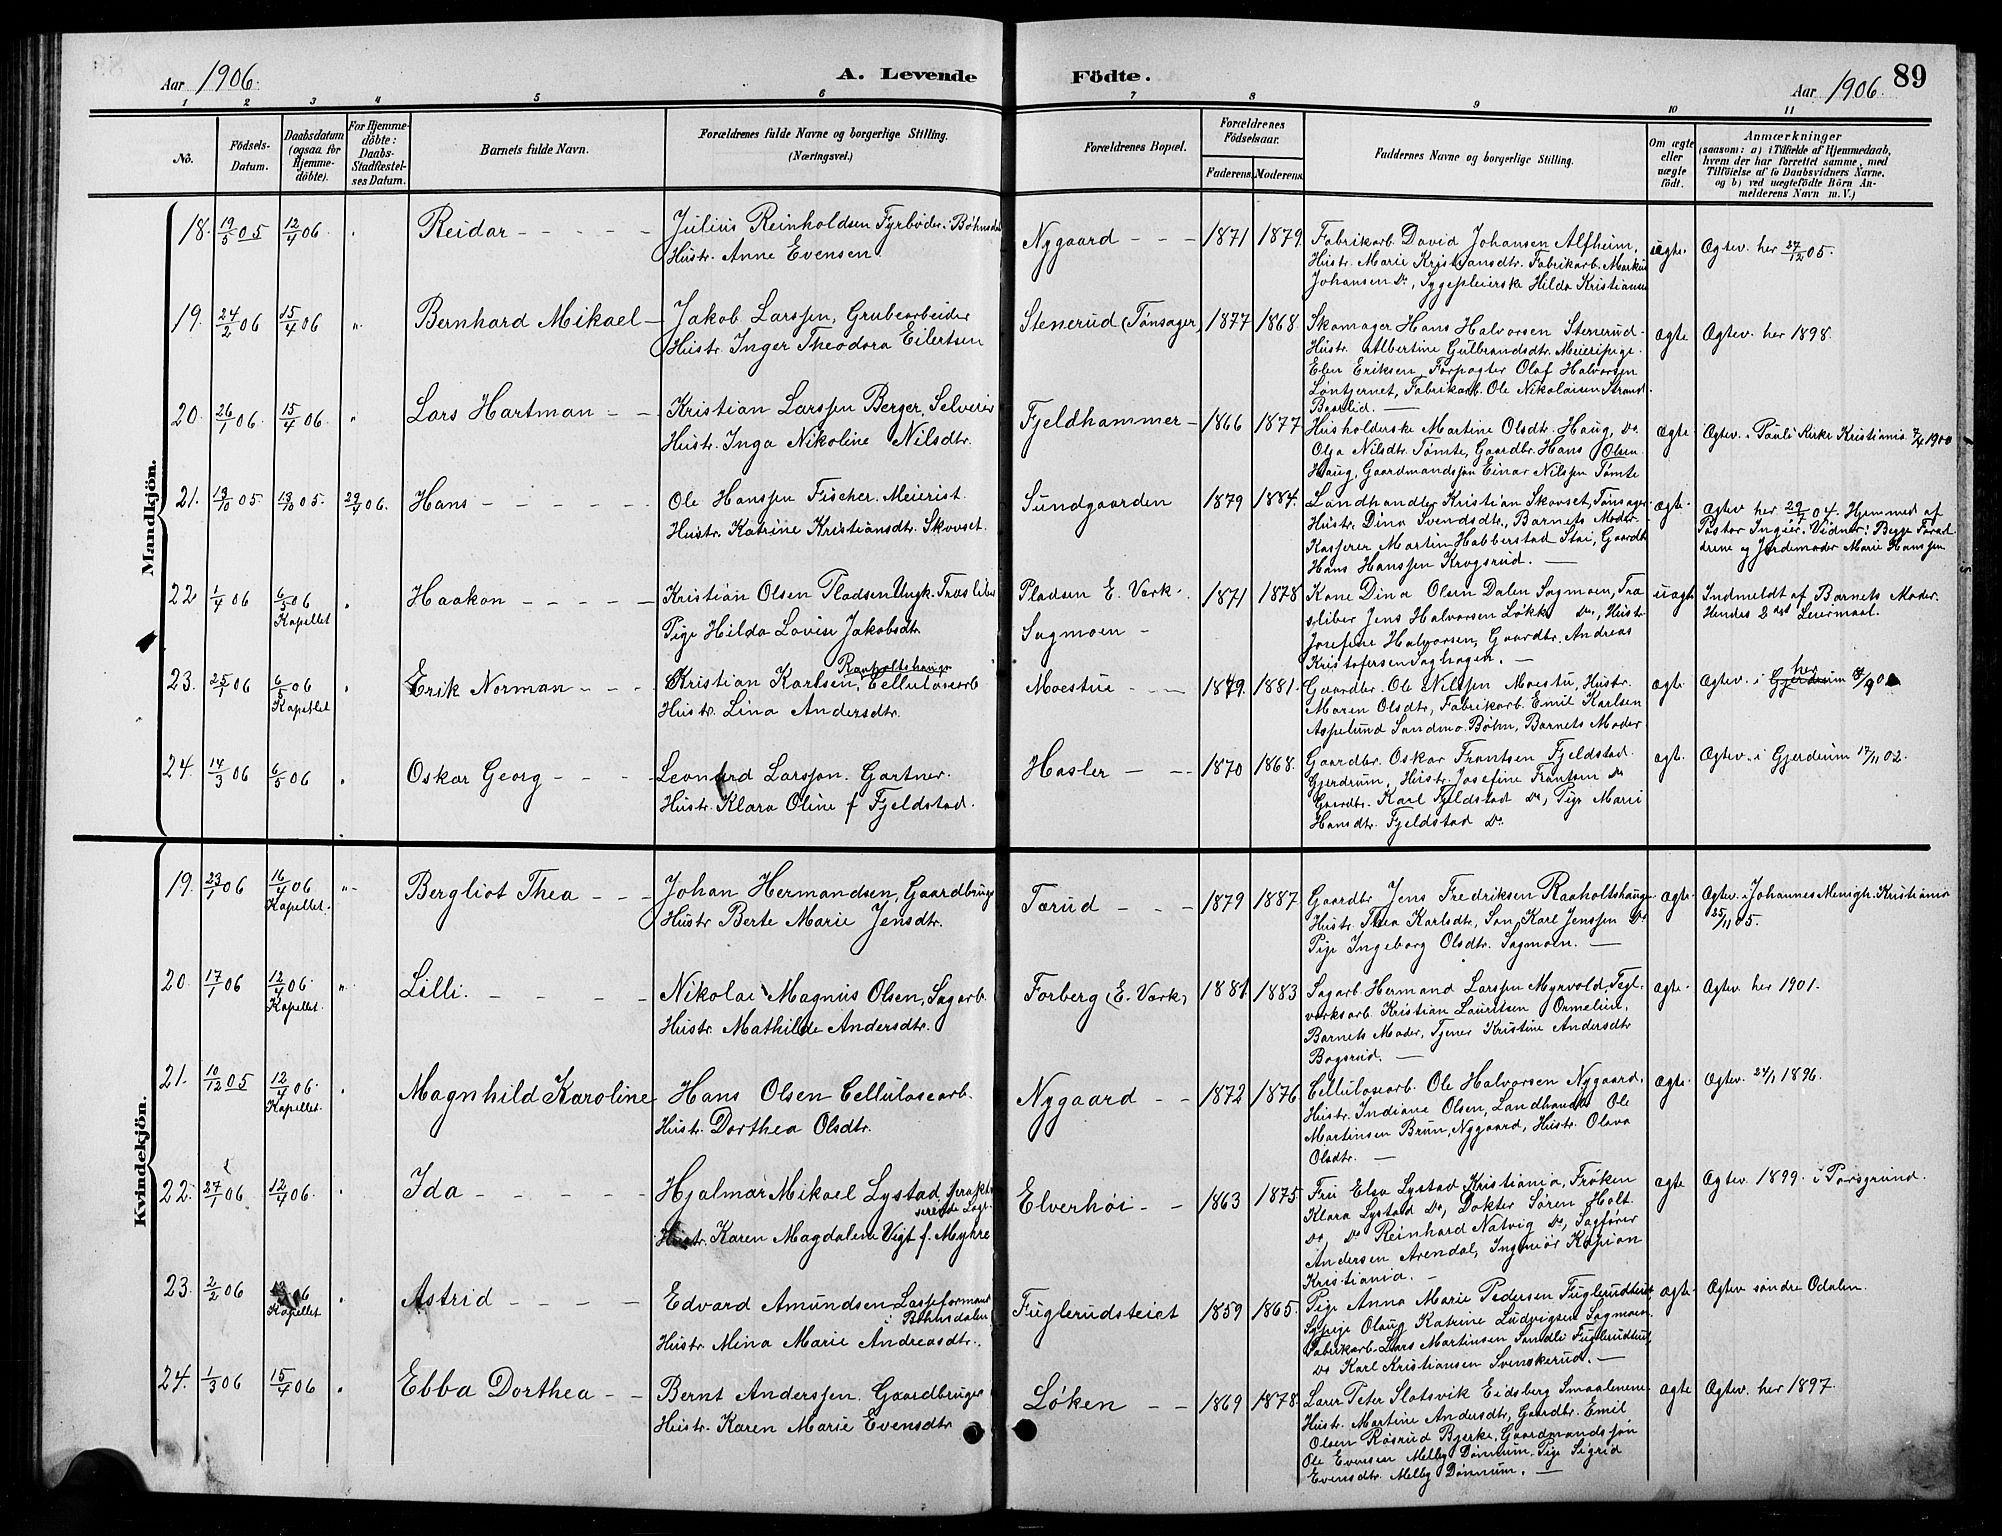 Aar 1906.
A. Levende Födte.
Aar 1906.
89
1 2 3 4 5 6 7 8 9 10 11
No.
Födsels-Datum.
Daabsdatum (ogsaa for Hjemme-döbte).
For Hjemme-döbte: Daabs-Stadfæstel-ses Datum.
Barnets fulde Navn.
Forældrenes fulde Navne og borgerlige Stilling.
(Næringsvei.)
Forældrenes Bopæl.
Forældrenes Födselsaar.
Faderens. Moderens.
Faddernes Navne og borgerlige Stilling.
Om ægte eller uægte födt.
Anmærkninger
(saasom: a) i Tilfælde af Hjemmedaab,
hvem der har forrettet samme, med
Tilföielse af to Daabsvidners Navne.
og b) ved uægtefödte Börn An-
melderens Navn m. V.)
Mandkjön.
18. 19/5 05 12/4 06. Reidar
Julius Reinholdsen Fyrbøder i Bøhnsdal
Hustr. Anne Evensen.
Nygaard 1871 1879.
Fabrikarb. David Johansen Alfheim,
Hustr. Marie Kristiansdtr. Fabrikarb. Markus
Johansen Do, Sygepleierske Hilda Kristiansen
uægte. Ægtev. her 27/12 05.
19. 24/2 06 15/4 06 " Bernhard Mikael
Jakob Larssen, Grubearbeider
Hustr. Inger Theodora Eilertsen
Stenerud (Tønsager) 1877 1868.
Skomager Hans Halvorsen Stenerud
Hustr. Albertine Gulbrandsdtr. Meieripige
Elen Eriksen, Forpagter Olaf Halvorsen
Løntjernet, Fabrikarb. Ole Nikolaisen Strand
Baarlid.
ægte Ægtev. her 1898.
20. 26/1 06. 15/4 06. " Lars Hartman
Kristian Larssen Berger, Selveier
Hustr. Inga Nikoline Nilsdtr.
Fjeldhammer 1866 1877
Husholderske Martine Olsdtr. Haug, Do
Olga Nilsdtr. Tømte, Gaardbr. Hans Olsen
Haug, Gaardmandssøn Einar Nilssen Tømte
ægte Ægtev. i Pauli Kirke Kristiania 7/4 1900
21. 19/10 05 19/10 05. 29/4 06. Hans
Ole Hanssen Fischer. Meierist.
Hustr. Katrine Kristiansdtr. Skovset.
Sundgaarden 1879 1884.
Landhandler Kristian Skovset, Tønsager
Hustr. Dina Svendsdtr., Barnets Moder
Kasserer Martin Habberstad Stai, Gaardb
Hans Hanssen Krogsrud.
ægte. Ægtev. her 29/1 04. Hjemmed. af
Pastor Ingier. Vidner: Begge Foræl
drene og Jordemoder Marie Hanssen
22 1/4 06 6/5 06 Kapellet Haakon
Kristian Olsen Pladsen Ungk. Træsliber
Pige Hilda Lovise Jakobsdtr.
Pladsen E. Værk.
Sagmoen
1871 1878
Kone Dina Olsen Dalen Sagmoen, Træ
sliber Jens Halvorsen Løkke Do, Hustr.
Josefine Halvorsen, Gaardbr. Andreas
Kristofersen Saghagen.
uægte Indmeldt af Barnets Moder.
Hendes 2det Leiermaal.
23. 25/1 06 6/5 06 Kapellet Erik Norman
Raaholtshaugn
Kristian Karlsen, Cellulosearb
Hustr. Lina Andersdtr.
Moestue 1879. 1881.
Gaardbr. Ole Nilssen Moestu, Hustr.
Maren Olsdtr, Fabrikarb. Emil Karlsen
Aspelund Sandmo. Bøhn, Barnets Moder
her
ægte Ægtev. i Gjerdrum
24. 14/3 06 6/5 06 Oskar Georg
Leonard Larsson. Gartner.
Hustr. Klara Oline f Fjeldstad.
Hasler 1870 1868.
Gaardbr. Oskar Frantsen Fjeldstad
Gjerdrum, Hustr. Josefine Frantsen Do
Gaardbr. Karl Fjeldstad Do, Pige Marie
Hansdtr. Fjeldstad Do.
ægte. Ægtev. i Gjerdrum 17/11 02.
Kvindekjön.
19. 23/1 06 16/4 06 Kapellet. Bergliot Thea
Johan Hermandsen, Gaardbruger
Hustr Berte Marie Jensdtr.
Tærud 1879 1887
Gaardbr Jens Fredriksen Raaholtshaugn
Hustr. Thea Karlsdtr, Søn Karl Jenssen Do
Pige Ingeborg Olsdtr. Sagmoen.
ægte. Ægtev. i Johannes Menigh. Kristiania
25/11 05.
20. 17/1 06 12/4 06. Kapellet. Lilli.
Nikolai Magnus Olsen, Sagarb.
Hustr. Mathilde Andersdtr.
Forberg (E. Værk) 1881 1883
Sagarb. Hermand Larssen Myrvold, Tegl-
værksarb. Kristian Lauritsen Ormelien,
Barnets Moder, Tjener Kristine Andersdtr
Bøgsrud.
ægte. Ægtev. her 1901.
21. 10/12 05 12/4 06. Kapellet. Magnhild Karoline
Hans Olsen Cellulosearb.
Hustr. Dorthea Olsdtr.
Nygaard 1872 1876
Cellulosearb. Ole Halvorsen Nygaard,
Hustr. Indiane Olsen, Landhandl. Ole
Martinsen Brun, Nygaard, Hustr. Olava
Olsdtr.
ægte. Ægtev. 24/1 1896.
22. 27/1 06 12/4 06. Ida
Hjalmar Mikael Lystad, prakti
serende Læge
Hustr. Karen Magdalene Vigt f. Myhre
Elverhøi 1863 1875
Fru Elsa Lystad Kristiania, Frøken
Klara Lystad Do, Dokter Søren Holt
Do, Do Reinhard Natvig Do, Sagfører
Andersen Arendal, Ingeniør Kapian
Kristiania.
ægte Ægtev. 1899 i Porsgrund.
23. 2/2 06 06 Kapellet Astrid
Edvard Amundsen Losseformand
i Bøhnsdalen
Hustr Mina Marie Andreasdtr.
Fuglerudsteiet 1859 1865.
Pige Anna Marie Pedersen Fuglerudteiet
Sypige Olaug Katrine Ludvigsen Sagmoen,
Fabrikarb. Lars Martinsen Sandli Fuglerudteiet,
Do Karl Kristiansen Svenskerud.
ægte. Ægtev søndre Odalen.
24. 1/3 06 15/4 06 Ebba Dorthea
Bernt Anderssen. Gaardbruger
Hustr. Karen Marie Evensdtr
Løken 1869 1878.
Lærer Peter Slotsvik Eidsberg Smaalenene
Hustr. Martine Andersdtr, Gaardbr. Emil
Olsen Røsrud Bjerke, Gaardmandssøn
Ole Evensen Melby Dønnum, Pige Sigrid
Evensdtr. Melby Dønnum.
ægte Ægtev. her 1897.